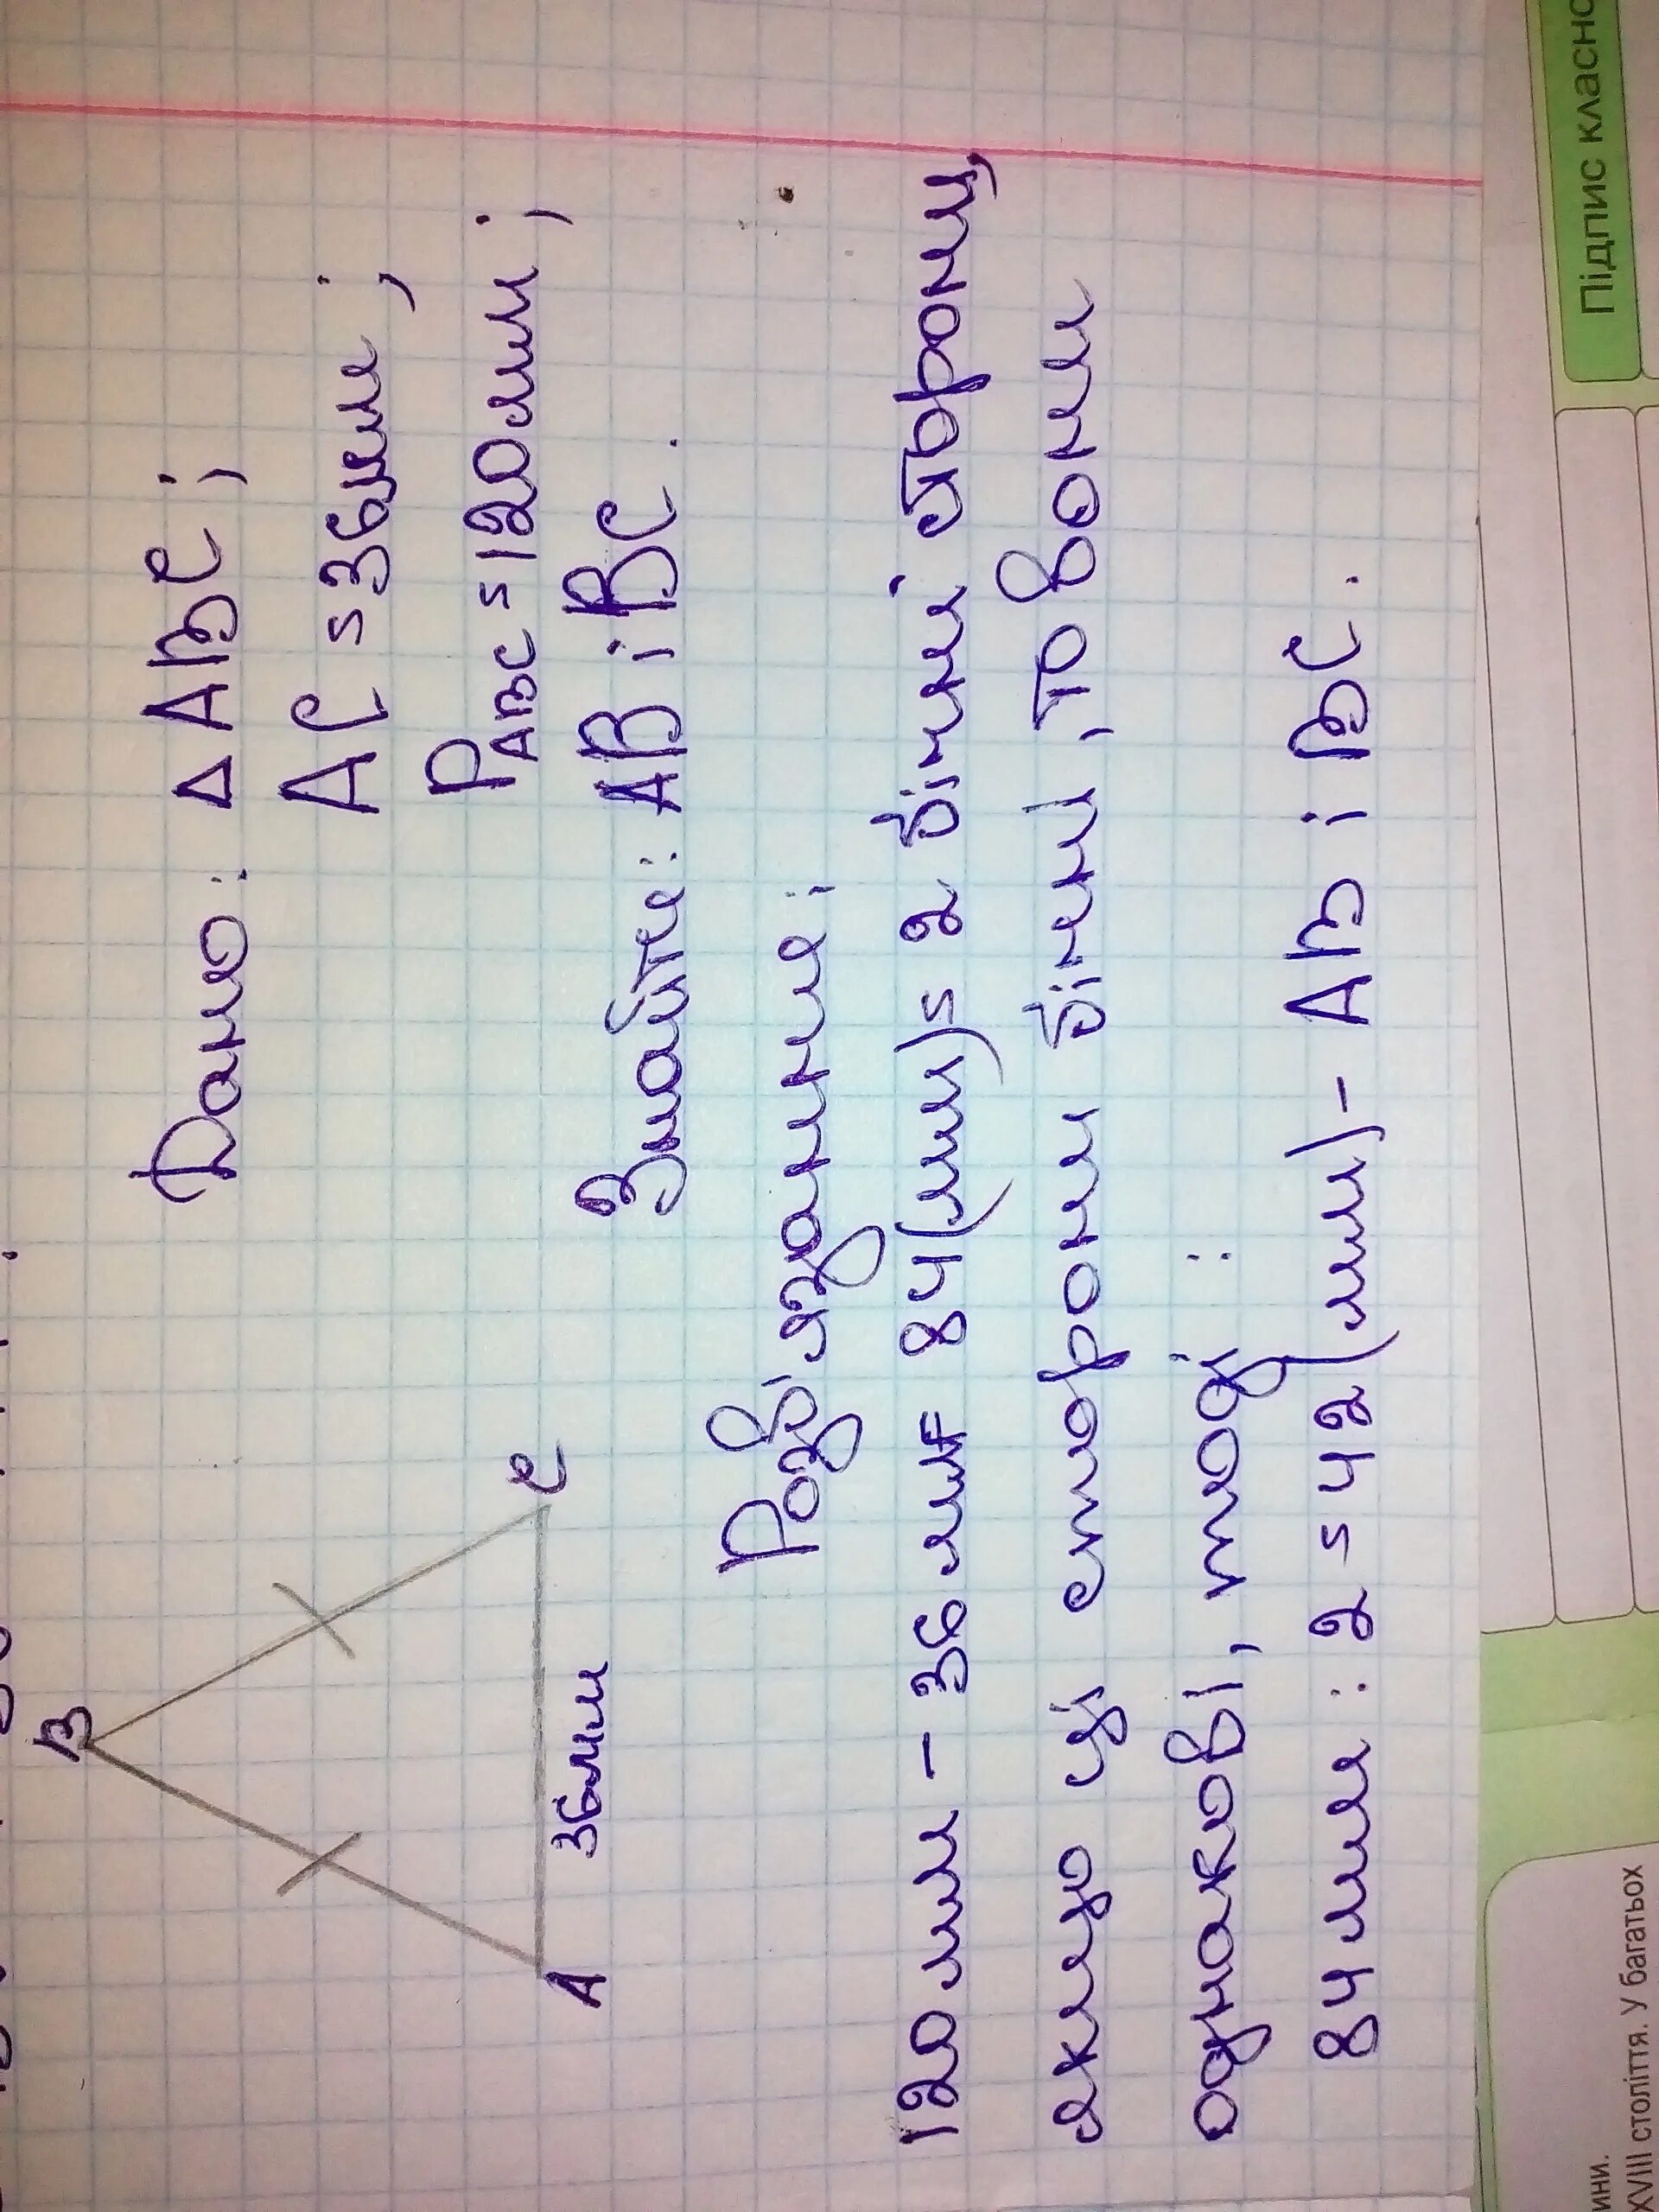 Дано: Δ ABC;
AC = 36мм;
P ABC = 120мм;
Знайти: AB і BC.
B
A
C
36мм
Розв'язання:
120 мм - 36 мм = 84(мм) = 2 бічні сторони,
якщо ці сторони бічні, то вони
однакові, тоді :
84 мм : 2 = 42 (мм) - AB і BC.
Підпис класно
ини.
XVIII століття. У багатьох